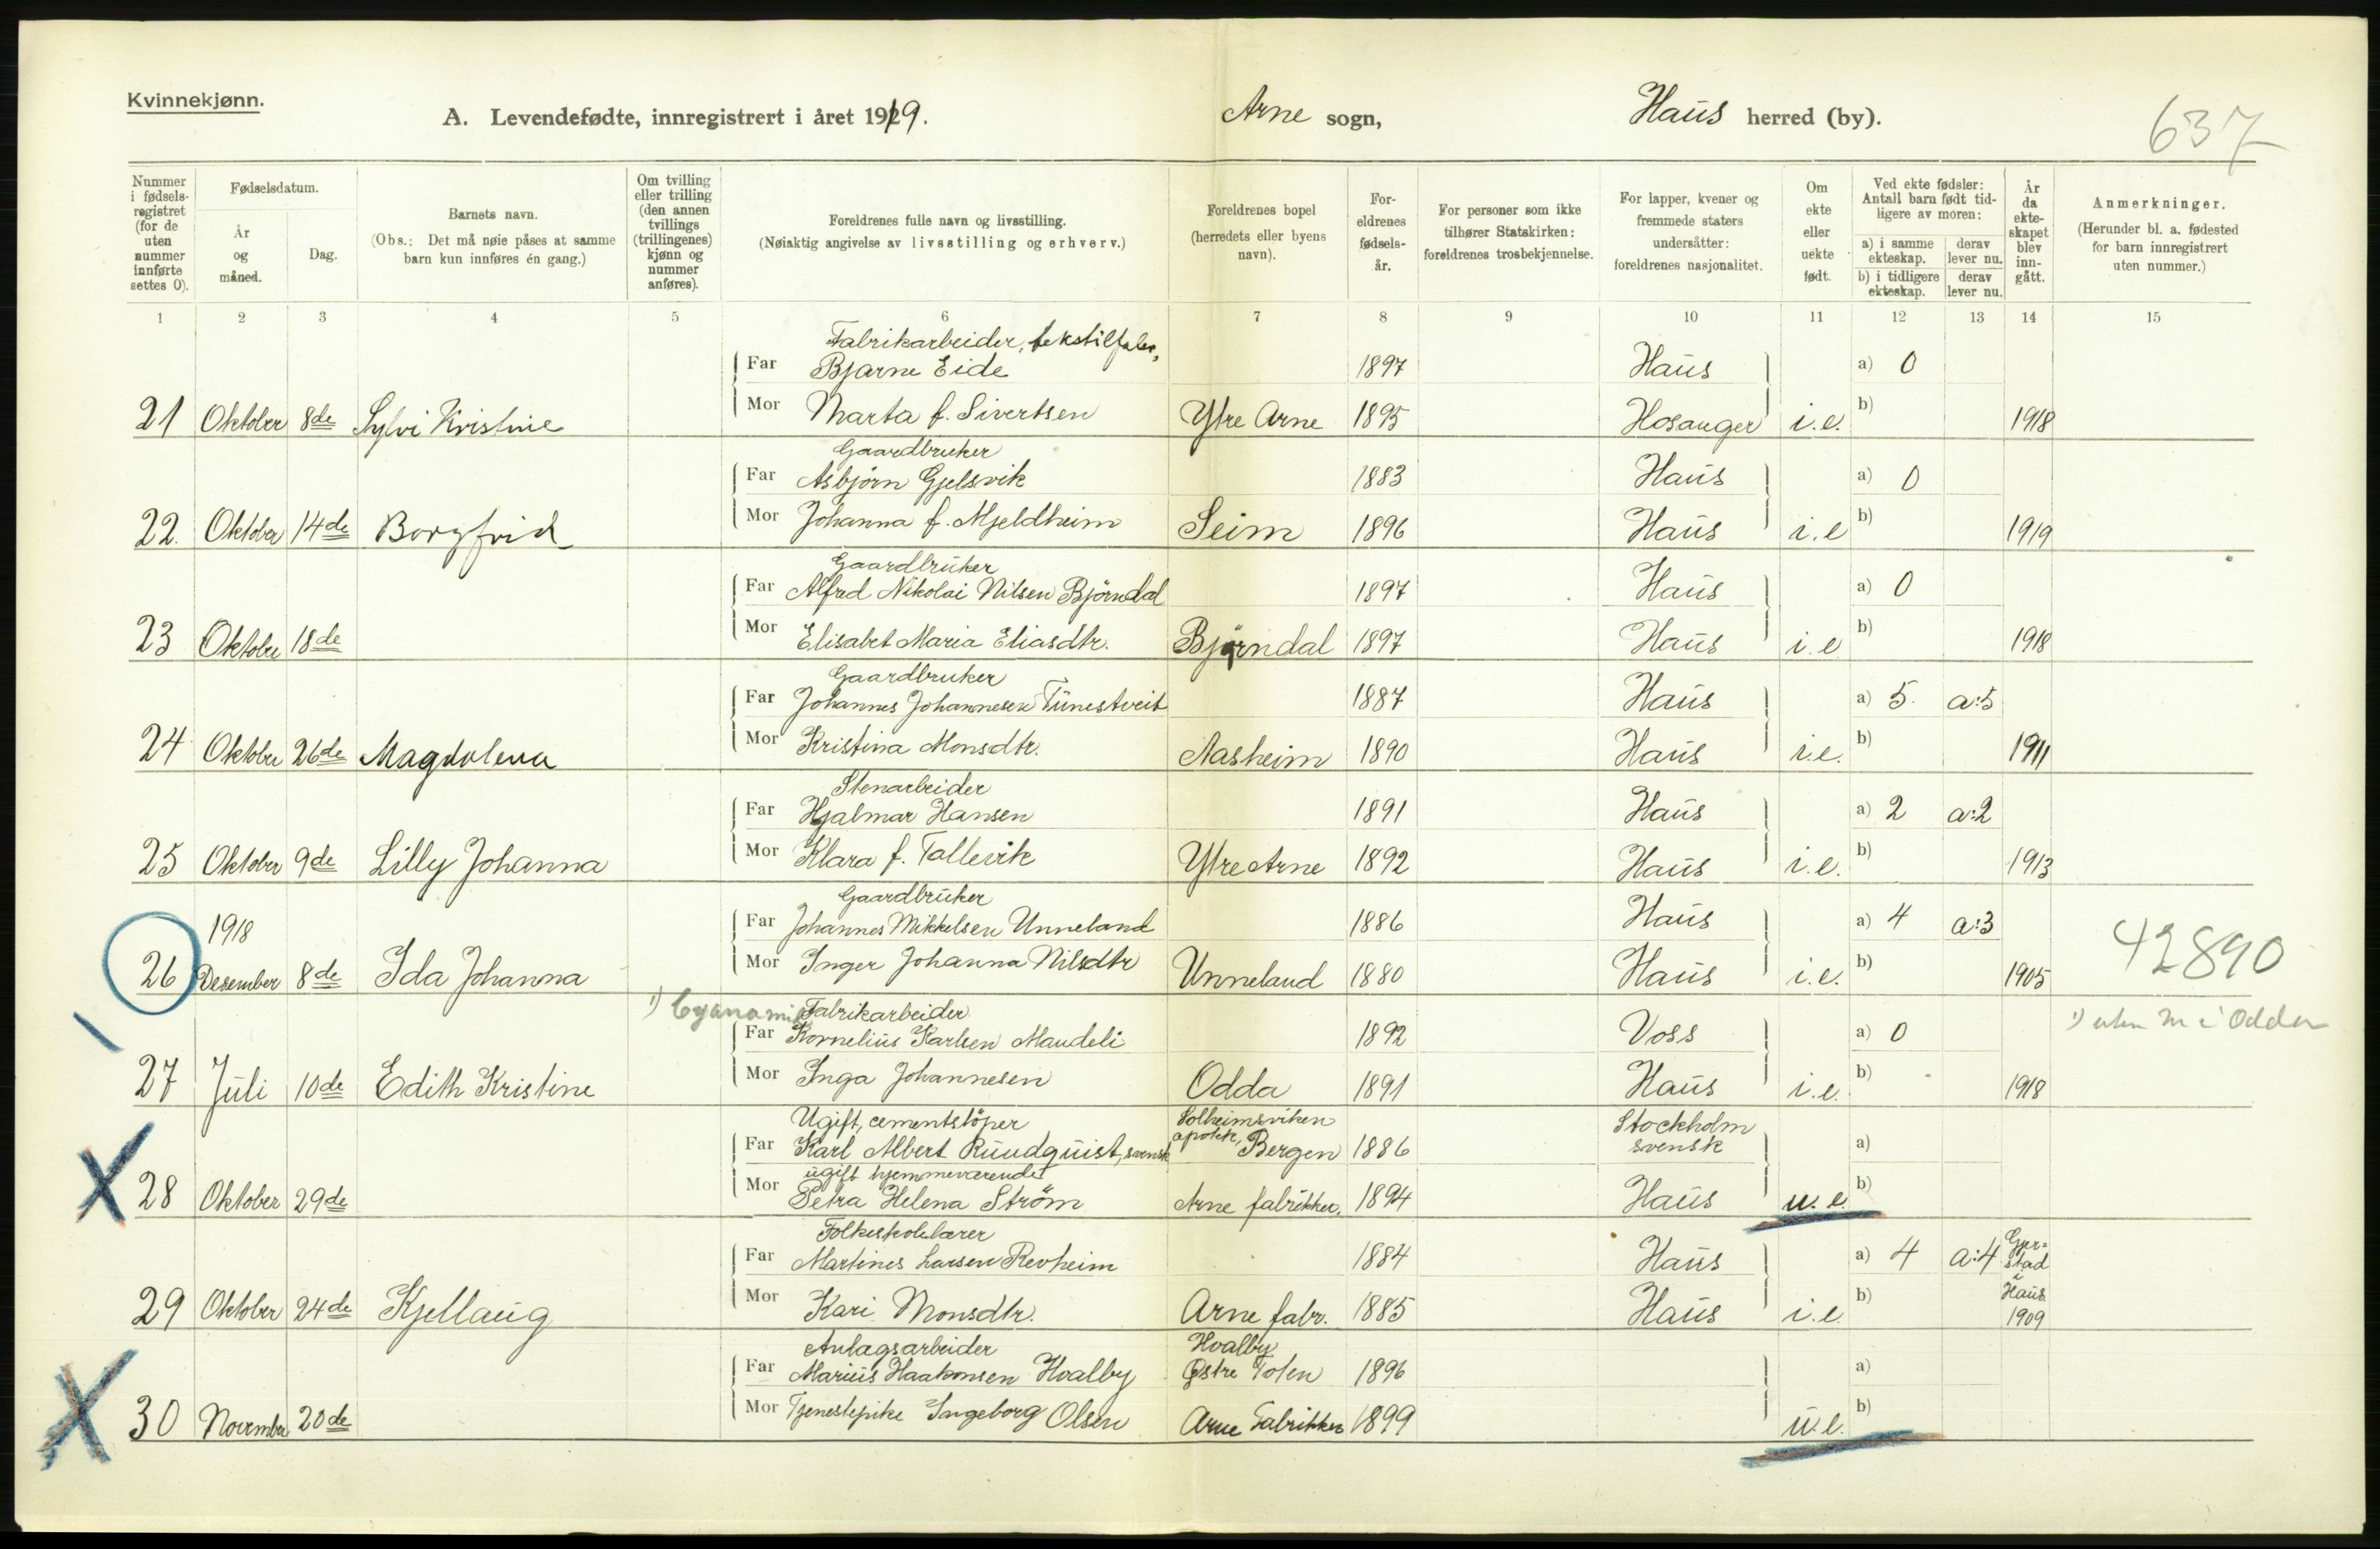 Kvinnekjønn.
A. Levendefødte, innregistrert i året 1919.
Arne sogn,
Haus herred (by).
637
Nummer i fødselsregistret (for de uten nummer innførte settes 0).
Fødselsdatum.
År og måned.
Dag.
Barnets navn.
(Obs.: Det må nøie påses at samme barn kun innføres én gang.)
Om tvilling eller trilling (den annen tvillings (trillingenes) kjønn og nummer anføres).
Foreldrenes fulle navn og livsstilling.
(Nøiaktig angivelse av livsstilling og erhverv.)
Foreldrenes bopel (herredets eller byens navn).
Foreldrenes fødselsår.
For personer som ikke tilhører Statskirken: foreldrenes trosbekjennelse.
For lapper, kvener og fremmede staters undersåtter: foreldrenes nasjonalitet.
Om ekte eller uekte født.
Ved ekte fødsler: Antall barn født tidligere av moren:
a) i samme ekteskap.
derav lever nu.
b) i tidligere ekteskap.
derav lever nu.
År da ekteskapet blev inngått.
Anmerkninger.
(Herunder bl. a. fødested for barn innregistrert uten nummer.)
1 2 3 4 5 6 7 8 9 10 11 12 13 14 15
Fabrikarbeider, tekstilfabr,
Far Bjarne Eide 1897 Haus a) 0
21 Oktober 8de Sylvi Kristine Mor Marta f. Sivertsen Ytre Arne 1895 Hosanger i.e. b) 1918
Gaardbruker
Far Asbjörn Gjelsvik 1883 Haus a) 0
22. Oktober 14de Borgfrid Mor Johanna f. Mjeldheim Seim 1896 Haus i.e b) 1919
Gaardbruker
Far Alfred Nikolai Nilsen Björndal 1897 Haus a) 0
23 Oktober 18de Mor Elisabet Maria Eliasdtr. Björndal 1897 Haus i.e b) 1918
Gaardbruker
Far Johannes Johannesen Tunestveit 1887 Haus a) 5. a:5
24 Oktober 26de Magdalena Mor Kristina Monsdtr. Aasheim 1890 Haus i.e. b) 1911
Stenarbeider
Far Hjalmar Hansen 1891 Haus a) 2 a:2
25 Oktober 9de Lilly Johanna Mor Klara f. Tallevik Ytre Arne 1892 Haus i.e. b) 1913
Gaardbruker
1918 Far Johannes Mikkelsen Unneland 1886 Haus a) 4 a:3
26 Desember 8de Ida Johanna Mor Inger Johanna Nilsdtr Unneland 1880 Haus i.e. b) 1905 42890
1) Cyanamid Fabrikarbeider
Far Kornelius Karlsen Maudeli 1892 Voss a) 0 1) uten nr i Odda
27 Juli 10de Edith Kristine Mor Inga Johannesen Odda 1891 Haus i.e. b) 1918
Ugift, cementstöper Solheimsviken Stockholm
Far Karl Albert Rundquist, svensk apotek, Bergen 1886 svensk a)
ugift hjemmeværende
28 Oktober 29de Mor Petra Helena Ström Arne fabrikker. 1894 Haus u.e. b)
Folkeskolelærer
Far Martines Larsen Revheim 1884 Haus a) 4 a:4 Gjerstad i Haus
29 Oktober 24de Kjellaug Mor Kari Monsdtr. Arne fabr. 1885 Haus i.e. b) 1909
Anlagsarbeider Hvalby
Far Marius Haakonsen Hvalby Østre Toten 1896 a)
30 November 20de Mor Tjenestepike Ingeborg Olsen Arne Fabrikker 1899 u.e. b)